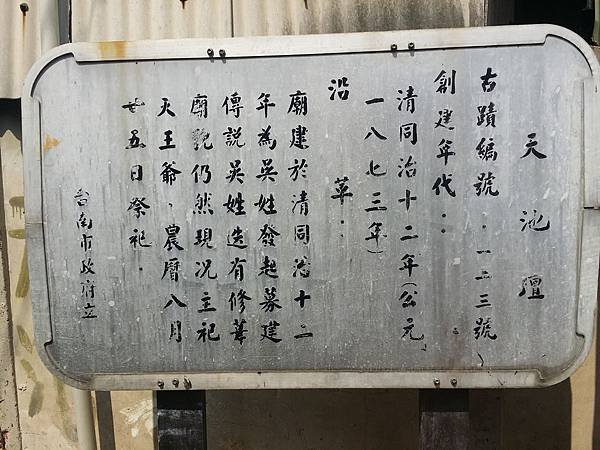 天池壇
古蹟編號：一二三號
創建年代：
清同治十二年（公元
一八七三年）
沿革：
廟建於清同治十二
年為吳姓發起募建
傳說吳姓迭有修葺
廟貌仍然現況主祀
天王爺，農曆八月
廿五日祭祀．
台南市政府立